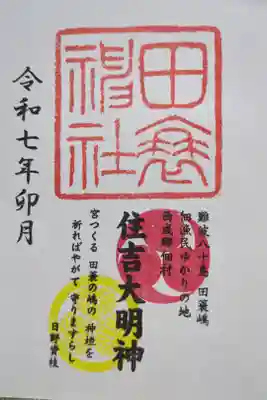 田蓑
神社
難波八十島 田蓑嶋
佃漁民ゆかりの地
西成郡佃村
住吉大明神
宮つくる 田蓑の嶋の 神垣を
祈ればやがて 守りますらし
日野資枝
令和七年卯月